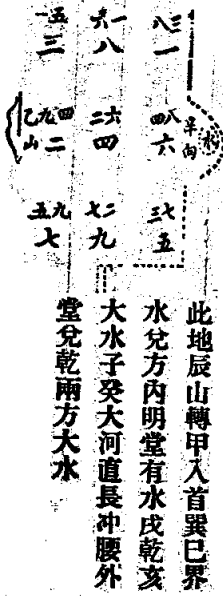 一五
三
六一
八
八三
一
水
辛向
乙山
九四
二
二六
四
四八
六
五九
七
七二
九
三七
五
此地辰山轉甲入首巽巳界
水兌方內明堂有水戌乾亥
大水子癸大河直長冲腰外
堂兌乾兩方大水